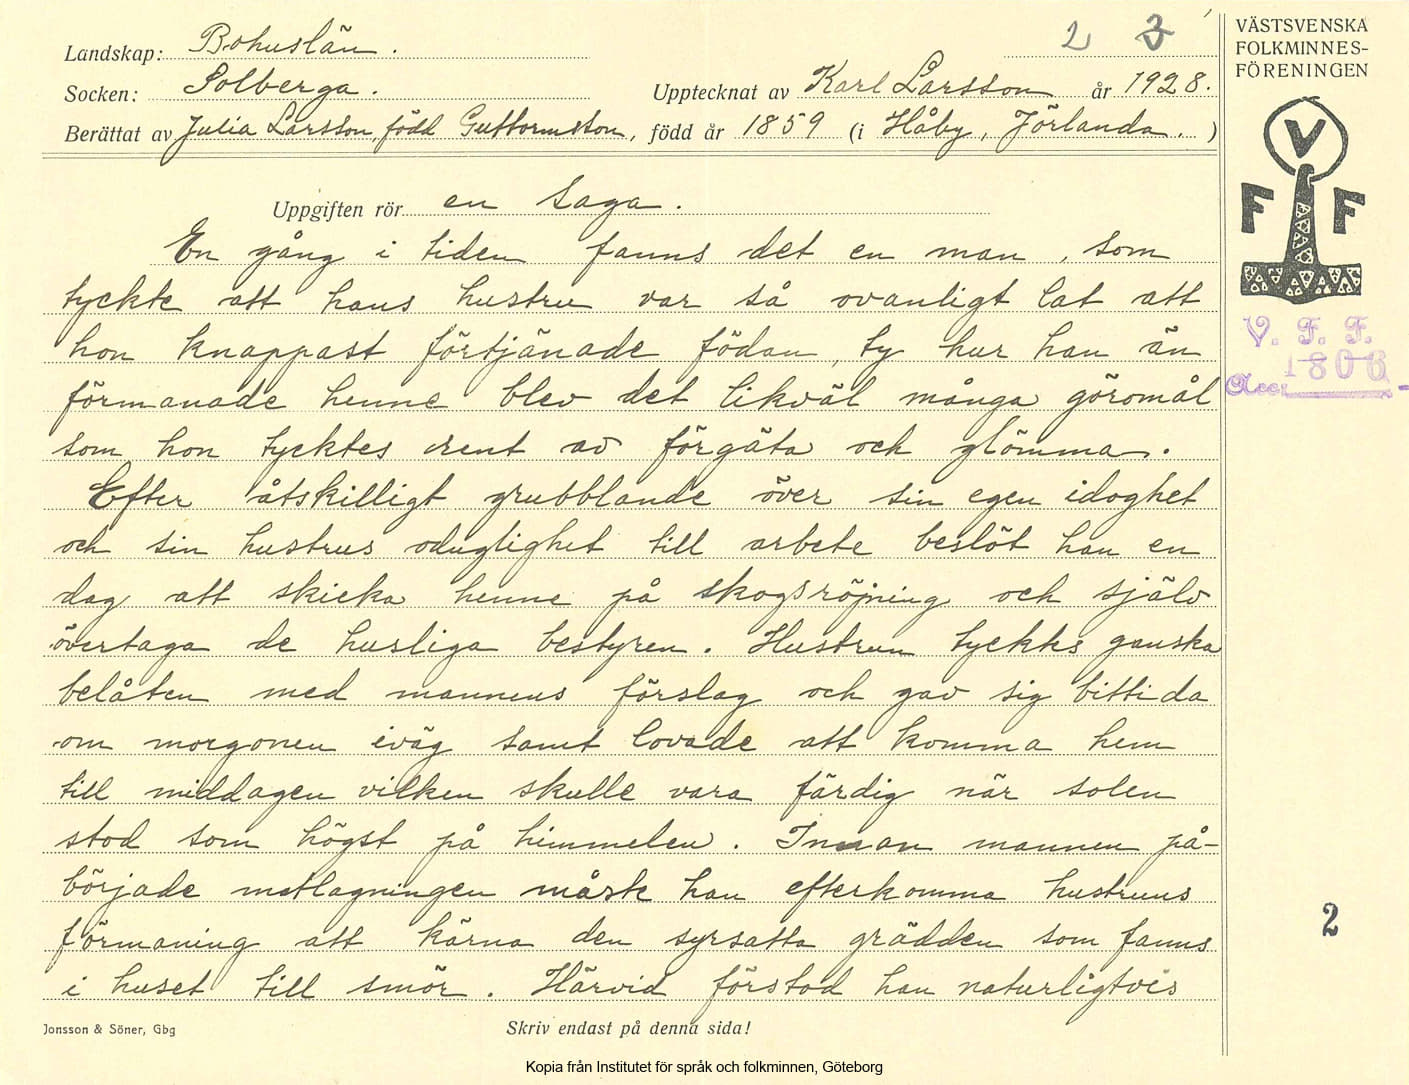 Landskap: Bohuslän.
Socken: Solberga.
Upptecknat av Karl Larsson år 1928.
Berättat av Julia Larsson, född Guttormsson, född år 1859 (i Håby, Jörlanda. )
2 3
VÄSTSVENSKA
FOLKMINNES-
FÖRENINGEN
V
F F
V. F. F.
1806
Acc.
Uppgiften rör en saga.
En gång i tiden fanns det en man, som
tyckte att hans hustru var så ovanligt lat att
hon knappast förtjänade födan, ty hur han än
förmanade henne blev det likväl många göromål
som hon tycktes rent av förgäta och glömma.
Efter åtskilligt grubblande över sin egen idoghet
och sin hustrus oduglighet till arbete beslöt han en
dag att skicka henne på skogsröjning och själv
övertaga de husliga bestyren. Hustrun tycktes ganska
belåten med mannens förslag och gav sig bittida
om morgonen iväg samt lovade att komma hem
till middagen vilken skulle vara färdig när solen
stod som högst på himmelen. Innan mannen på-
började matlagningen måste han efterkomma hustruns
förmaning att kärna den syrsatta grädden som fanns
i huset till smör. Härvid förstod han naturligtvis
2
Jonsson & Söner, Gbg
Skriv endast på denna sida!
Kopia från Institutet för språk och folkminnen, Göteborg